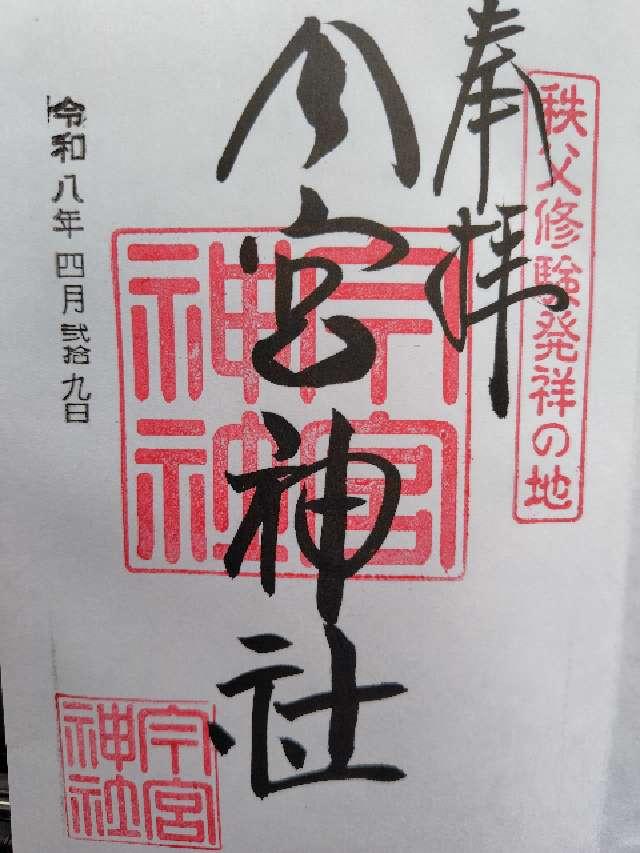 奉拝
秩父修験発祥の地
今宮神社
今宮神社
令和八年四月弐拾九日
今宮神社